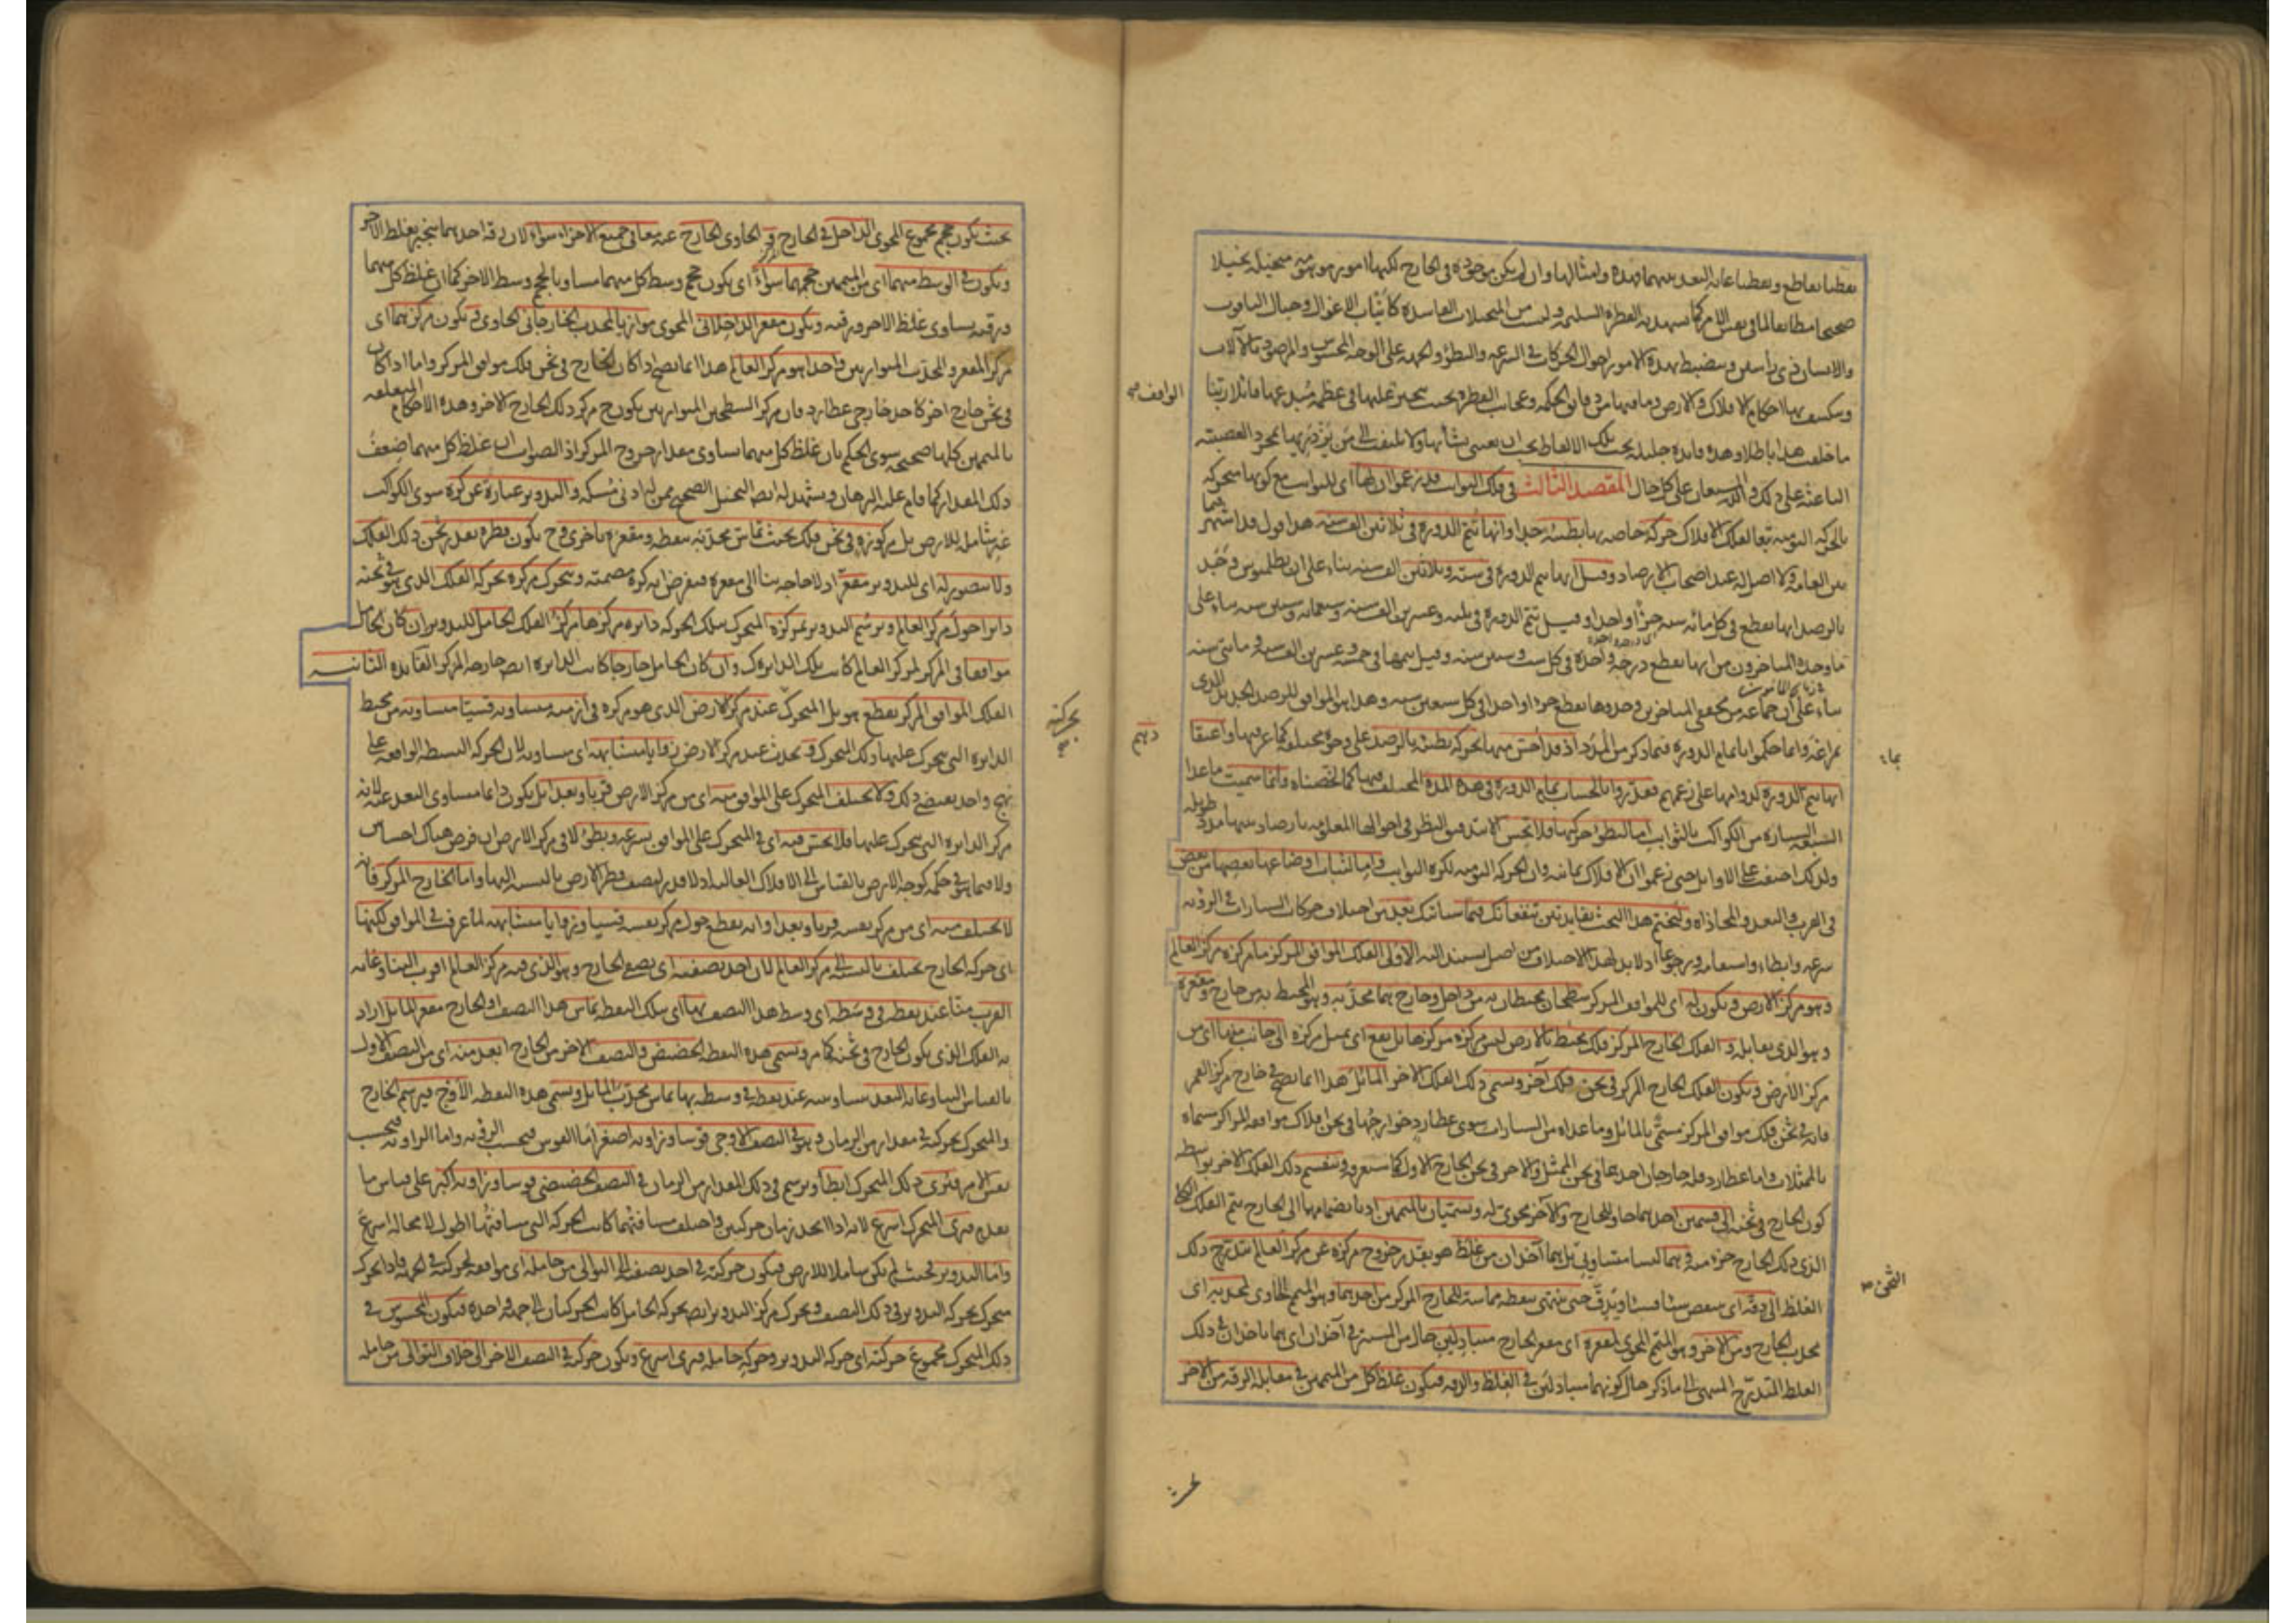 صحيحا مطابقا لما في نفس الامر كما يشهد به الفطرة السليمة وليست من المتخيلات الفاسدة كأنياب الاغوال وجبال الياقوت
والانسان ذي رأسين وينضبط بهذه الامور احوال الحركات في السرعة والبطؤ والجهة على الوجه المحسوس والمرصود بالآلات
وينكشف بها احكام الافلاك والارض وما فيها من دقائق الحكمة وعجائب الفطرة بحيث يتحير الواقف عليها في عظمة مبدعها قائلا ربنا
ما خلقت هذا باطلا وهذه فائدة جليلة تحت تلك الالفاظ يجب ان يعتنى بشأنها ولا يلتفت الى من يزدريها بمجرد العصبية
الباعثة على ذلك والله المستعان على كل حال المقصد الثالث في فلك الثوابت قد زعموا ان لها اي للثوابت مع كونها متحركة
بالحركة اليومية تبعا لفلك الافلاك حركة خاصة بها بطيئة جدا وانها تتم الدورة في ثلاثين الف سنة هذا قول قد اشتهر فيما
بين العامة ولا اصل له عند اصحاب الارصاد وقيل انها تتم الدورة في ستة وثلاثين الف سنة بناء على ان بطلميوس وجد
بالرصد انها تقطع في كل مائة سنة جزأ واحدا وقيل تتم الدورة في ثلثة وعشرين الف سنة وسبعمائة وستين سنة بناء على
ما وجده المتأخرون من انها تقطع درجة واحدة في كل ست وستين سنة وقيل تتمها في خمسة وعشرين الف سنة ومائتي سنة
بناء على ان جماعة من محققي المتأخرين وجدوها تقطع جزءا واحدا في كل سبعين سنة وهذا هو الموافق للرصد الجديد الذي
بمراغة وانما حكموا بتمام الدورة فيما ذكر من المدد اذ قد احس منها بحركة بطيئة بالرصد على وجوه مختلفة كما عرفتها واعتقاد
انها تتم الدورة لدوامها على زعمهم فقدروا بالحساب تمام الدورة في هذه المدة المختلف فيها كما لخصناه وانما سميت ما عدا
السبعة السيارة من الكواكب بالثوابت اما لبطؤ حركتها فلا تحس الا بتدقيق النظر في احوالها المعلومة بارصاد بينها مدد طويلة
ولذلك اختفت على الاوائل حتى زعموا ان الافلاك ثمانية وان الحركة اليومية لكرة الثوابت واما لثبات اوضاعها بعضها من بعض
في القرب والبعد والمحاذاة ولنختم هذا البحث بفائدتين تنفعانك فيما سيأتيك بعد من اختلاف حركات السيارات في الرؤية
سرعة وابطاء واستقامة ورجوعا اذ لا بد لهذا الاختلاف من اصل يستند اليه الاولى الفلك الموافق المركز ما مركزه مركز العالم
وهو مركز الارض ويكون له اي للموافق المركز سطحان محيطان به من داخل وخارج هما محدبه وهو المحيط به من خارج ومقعره
وهو الذي يقابله والفلك الخارج المركز فلك محيط بالارض ليس مركزه مركزها بل يقع اي يميل مركزه الى جانب منها اي من
مركز الارض ويكون الفلك الخارج المركز في ثخن فلك آخر ويسمى ذلك الفلك الآخر المائل هذا انما يصح في خارج مركز القمر
فانه في ثخن فلك موافق المركز مسمى بالمائل وما عداه من السيارات سوى عطارد خوارجها في ثخن افلاك موافقة المراكز مسماة
بالممثلات واما عطارد فله خارجان احدهما في ثخن الممثل والآخر في ثخن الخارج الاول كما ستعرفه وينقسم ذلك الفلك الآخر بواسطة
كون الخارج في ثخنه الى قسمين احدهما حاو للخارج والآخر محوي له ويسميان بالمتممين اذ بانضمامهما الى الخارج يتم الفلك الكل
الذي ذلك الخارج جزء منه وهما ليسا متساويين بل هما آخذان من غلظ هو بقدر خروج مركزه عن مركز العالم يتدرج ذلك
الغلظ الى رقة اي ينقص شيئا فشيئا ويدق حتى ينتهي بنقطة مماسة للخارج المركز من احدهما وهو المتمم الحاوي لمحدبه اي
محدب الخارج ومن الآخر وهو المتمم المحوي لمقعره اي مقعر الخارج متبادلين حال من المستتر في آخذان اي هما ياخذان في ذلك
الغلظ المتدرج المنتهي الى ما ذكر حال كونهما متبادلين في الغلظ والرقة فيكون غلظ كل من المتممين في مقابلة الرقة من الآخر
بحيث
بحيث يكون حجم مجموع المحوي الداخل في الخارج والحاوي الخارج عنه معا في جميع الاجزاء سواء لان رقة احدهما تنجبر بغلظ الآخر
ويكون في الوسط منهما اي من المتممين حجمهما سواء اي يكون حجم وسط كل منهما مساويا لحجم وسط الآخر كما ان غلظ كل منهما
ورقته يساوي غلظ الآخر ورقته ويكون مقعر الداخلاني المحوي موازيا لمحدب الخارجاني الحاوي ويكون مركزهما اي
مركز المقعر والمحدب المتوازيين واحدا هو مركز العالم هذا انما يصح اذا كان الخارج في ثخن فلك موافق المركز واما اذا كان
في ثخن خارج آخر كاحد خارجي عطارد فان مركز السطحين المتوازيين يكون ح مركز ذلك الخارج الآخر وهذه الاحكام المتعلقة
بالمتممين كلها صحيحة سوى الحكم بان غلظ كل منهما يساوي مقدار خروج المركز اذ الصواب ان غلظ كل منهما ضعف
ذلك المقدار كما قام عليه البرهان ويشهد له ايضا التخيل الصحيح ممن له ادنى مسكة والتدوير عبارة عن كرة سوى الكواكب
غير شاملة للارض بل مركوزة في ثخن فلك بحيث تماس محدبه بنقطة ومقعره باخرى وح يكون قطره بقدر ثخن ذلك الفلك
ولا يتصور له اي للتدوير مقعر اذ لا حاجة بنا الى مقعره فنفرض انه كرة مصمتة ويتحرك مركزه بحركة الفلك الذي هو في ثخنه
دائرا حول مركز العالم ويرسم التدوير بمركزه المتحرك بتلك الحركة دائرة مركزها مركز الفلك الحامل للتدوير ان كان الحامل
موافقا في المركز لمركز العالم كانت تلك الدائرة ك وان كان الحامل خارجا كانت الدائرة ايضا خارجة المركز الفائدة الثانية
الفلك الموافق المركز يقطع هو بل المتحرك بحركته عند مركز الارض الذي هو مركزه في ازمنة متساوية قسيا متساوية من محيط
الدائرة التي يتحرك عليها ذلك المتحرك ويحدث عند مركز الارض زوايا متشابهة اي متساوية لان الحركة البسيطة الواقعة على
نهج واحد يقتضي ذلك ولا يختلف المتحرك على الموافق منه اي من مركز الارض قربا وبعدا بل يكون دائما متساوي البعد عنه لانه
مركز الدائرة التي يتحرك عليها فلا يحس فيه اي في المتحرك على الموافق سرعة وبطؤ لا في مركز الارض ان فرض هناك احساس
ولا فيما هو في حكمه كوجه الارض بالقياس الى الافلاك العالية اذ لا قدر لنصف قطر الارض بالنسبة اليها واما الخارج المركز فانه
لا يختلف منه اي من مركز نفسه قربا وبعدا وانه يقطع حول مركز نفسه قسيا وزوايا متشابهة لما عرفت في الموافق لكنها
اي حركة الخارج تختلف بالنسبة الى مركز العالم لان احد نصفيه اي نصفي الخارج وهو الذي فيه مركز العالم اقرب الينا وغاية
القرب منا عند نقطة في وسطه اي وسط هذا النصف بها اي بتلك النقطة يماس هذا النصف والخارج مقعر المائل اراد
به الفلك الذي يكون الخارج في ثخنه كما مر ويسمى هذه النقطة الحضيض والنصف الآخر من الخارج ابعد منه اي من النصف الاول
بالقياس الينا وغاية البعد بيننا وبينه عند نقطة في وسطه بها يماس محدب المائل ويسمى هذه النقطة الاوج فيرسم الخارج
والمتحرك بحركته في مقدار من الزمان وهو في النصف الاوجي قوسا وزاوية اصغر اما القوس فبحسب الرؤية واما الزاوية فبحسب
نفس الامر فيرى ذلك المتحرك ابطأ ويرسم في ذلك المقدار من الزمان في النصف الحضيضي قوسا وزاوية اكبر على قياس ما
تقدم فيرى المتحرك اسرع لانه اذا اتحد زمان حركتين واختلف مسافتهما كانت الحركة التي مسافتها اطول لا محالة اسرع
واما التدوير فحيث لم يكن شاملا للارض فيكون حركته في احد نصفيه الى التوالي من حامله اي موافقة لحركته في الجهة فاذا تحرك
متحرك بحركة التدوير في ذلك النصف وتحرك مركز التدوير ايضا بحركة الحامل كانت الحركتان الى جهة واحدة فيكون المحسوس في
ذلك المتحرك مجموع حركتيه اي حركة التدوير وحركة حامله فيرى اسرع ويكون حركته في النصف الآخر الى خلاف التوالي من حامله